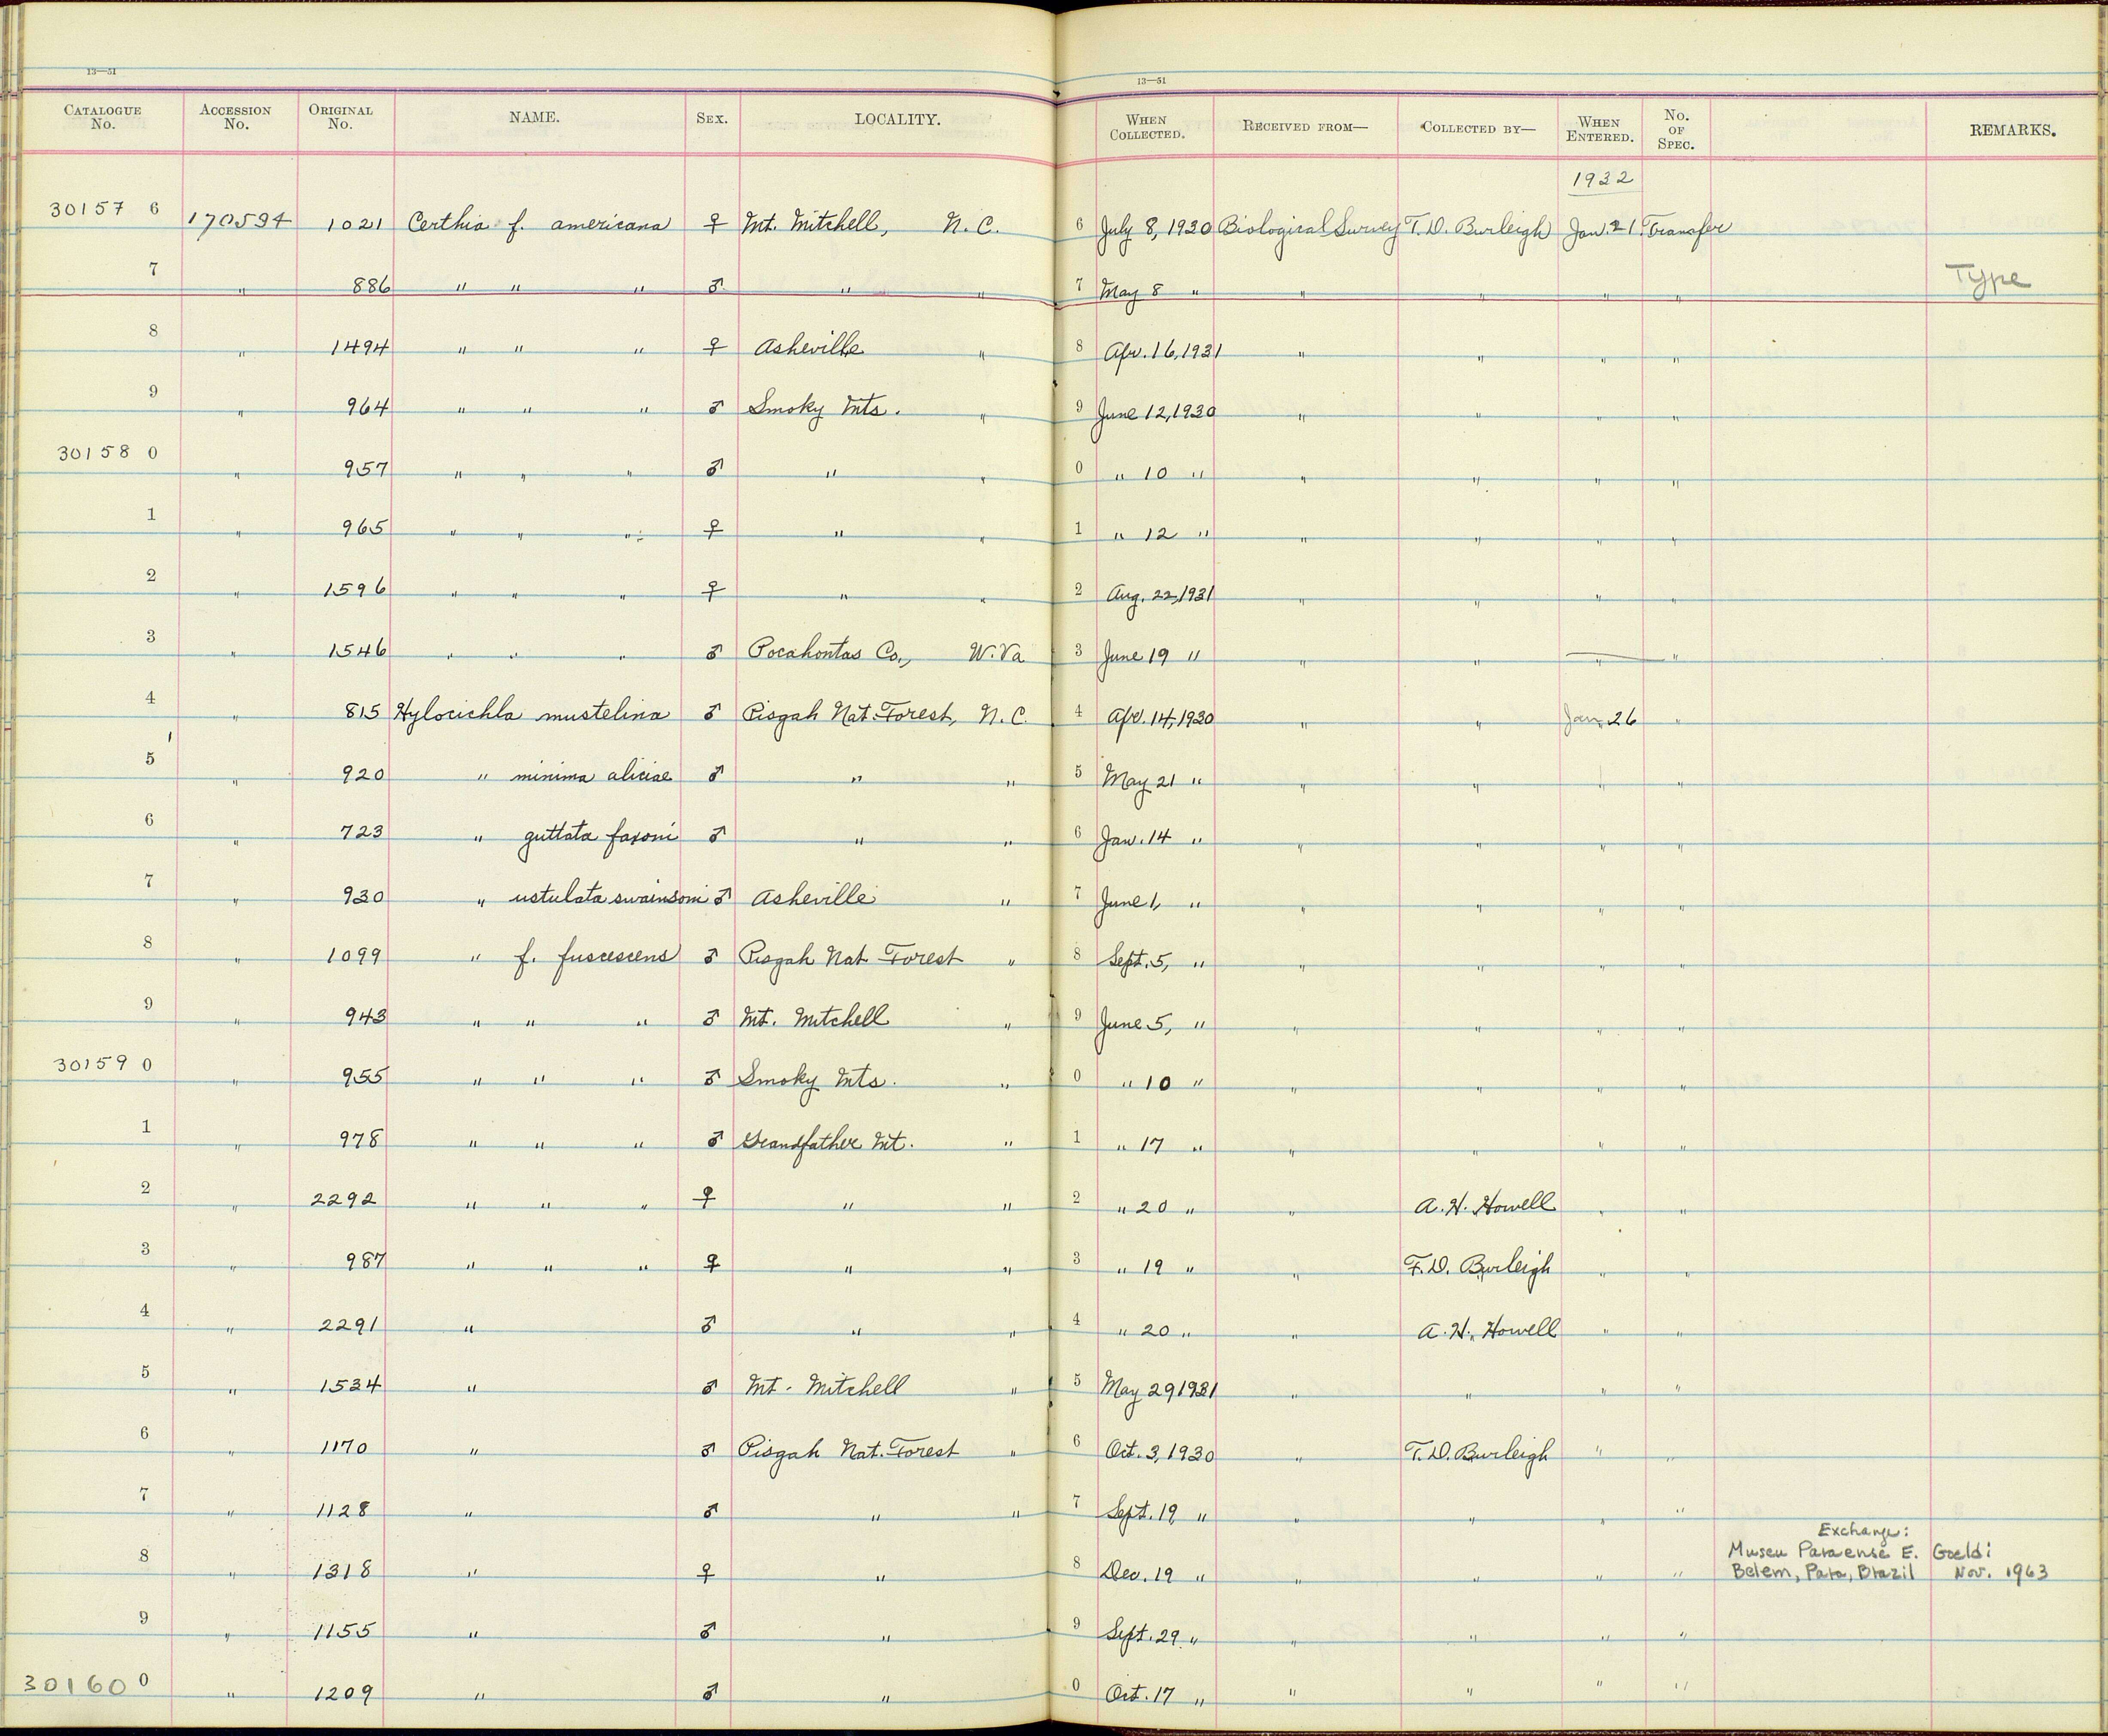 13—51 13—51
CATALOGUE No. ACCESSION No. ORIGINAL No. NAME. SEX. LOCALITY. WHEN COLLECTED. RECEIVED FROM— COLLECTED BY— WHEN ENTERED. No. OF SPEC. REMARKS.
1932
30157 6 170594 1021 Certhia f. americana ♀ Mt. Mitchell, N.C. 6 July 8, 1930 Biological Survey T.D. Burleigh Jan. 21 Transfer
7 " 886 " " " ♂ " " 7 May 8 " " " " " Type
8 " 1494 " " " ♀ Asheville " 8 Apr. 16, 1931 " " " "
9 " 964 " " " ♂ Smoky Mts. " 9 June 12, 1930 " " " "
30158 0 " 957 " " " ♂ " " 0 " 10 " " " " "
1 " 965 " " " ♀ " " 1 " 12 " " " " "
2 " 1596 " " " ♀ " " 2 Aug. 22, 1931 " " " "
3 " 1546 " " " ♂ Pocahontas Co., W. Va 3 June 19 " " " " "
4 " 815 Hylocichla mustelina ♂ Pisgah Nat. Forest, N.C. 4 Apr. 14, 1930 " " Jan. 26 "
5 " 920 " minima aliciae ♂ " " 5 May 21 " " " " "
6 " 723 " guttata faxoni ♂ " " 6 Jan. 14 " " " " "
7 " 930 " ustulata swainsoni ♂ Asheville " 7 June 1, " " " " "
8 " 1099 " f. fuscescens ♂ Pisgah Nat Forest " 8 Sept. 5, " " " " "
9 " 943 " " " ♂ Mt. Mitchell " 9 June 5, " " " " "
30159 0 " 955 " " " ♂ Smoky Mts. " 0 " 10 " " " " "
1 " 978 " " " ♂ Grandfather Mt. " 1 " 17 " " " " "
2 " 2292 " " " ♀ " " 2 " 20 " " A. H. Howell " "
3 " 987 " " " ♀ " " 3 " 19 " " T. D. Burleigh " "
4 " 2291 " ♂ " " 4 " 20 " " A. H. Howell " "
5 " 1534 " ♂ Mt. Mitchell " 5 May 29 1931 " " " "
6 " 1170 " ♂ Pisgah Nat. Forest " 6 Oct. 3, 1930 " T. D. Burleigh " "
7 " 1128 " ♂ " " 7 Sept. 19 " " " " "
Exchange:
Museu Paraense E. Goeldi
8 " 1318 " ♀ " 8 Dec. 19 " " " " " Belem, Para, Brazil Nov. 1963
9 " 1155 " ♂ " 9 Sept. 29 " " " " "
30160 0 " 1209 " ♂ " 0 Oct. 17 " " " " "